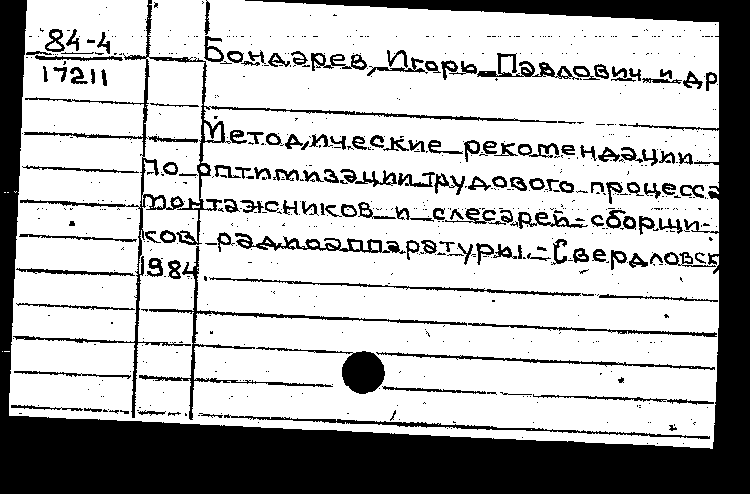 84-4
17211
Бондарев, Игорь Павлович и др
Методические рекомендации
по оптимизации трудового процесса
монтажников и слесарей-сборщи-
ков радиоаппаратуры.-Свердловск,
1984.